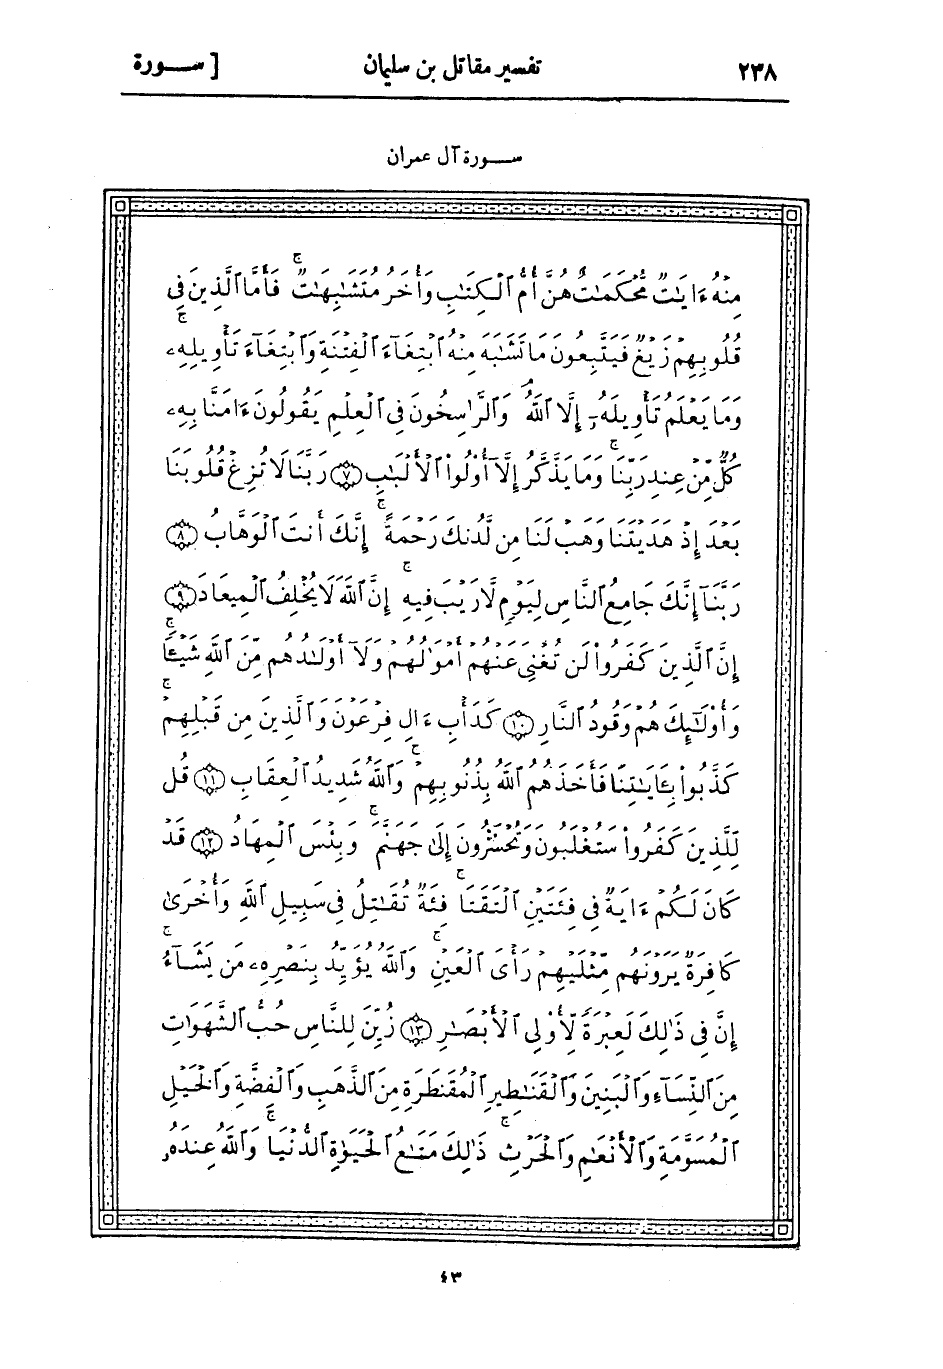 ٢٣٨ تفسير مقاتل بن سليمان [ ســورة
ســورة آل عمران
مِنْهُ ءَايَٰتٌ مُّحْكَمَٰتٌ هُنَّ أُمُّ ٱلْكِتَٰبِ وَأُخَرُ مُتَشَٰبِهَٰتٌ ۖ فَأَمَّا ٱلَّذِينَ فِى
قُلُوبِهِمْ زَيْغٌ فَيَتَّبِعُونَ مَا تَشَٰبَهَ مِنْهُ ٱبْتِغَآءَ ٱلْفِتْنَةِ وَٱبْتِغَآءَ تَأْوِيلِهِۦ ۚ
وَمَا يَعْلَمُ تَأْوِيلَهُۥٓ إِلَّا ٱللَّهُ ۗ وَٱلرَّٰسِخُونَ فِى ٱلْعِلْمِ يَقُولُونَ ءَامَنَّا بِهِۦ
كُلٌّ مِّنْ عِندِ رَبِّنَا ۗ وَمَا يَذَّكَّرُ إِلَّآ أُو۟لُوا۟ ٱلْأَلْبَٰبِ ٧ رَبَّنَا لَا تُزِغْ قُلُوبَنَا
بَعْدَ إِذْ هَدَيْتَنَا وَهَبْ لَنَا مِن لَّدُنكَ رَحْمَةً ۚ إِنَّكَ أَنتَ ٱلْوَهَّابُ ٨
رَبَّنَآ إِنَّكَ جَامِعُ ٱلنَّاسِ لِيَوْمٍ لَّا رَيْبَ فِيهِ ۚ إِنَّ ٱللَّهَ لَا يُخْلِفُ ٱلْمِيعَادَ ٩
إِنَّ ٱلَّذِينَ كَفَرُوا۟ لَن تُغْنِىَ عَنْهُمْ أَمْوَٰلُهُمْ وَلَآ أَوْلَٰدُهُم مِّنَ ٱللَّهِ شَيْـًٔا ۖ
وَأُو۟لَٰٓئِكَ هُمْ وَقُودُ ٱلنَّارِ ١٠ كَدَأْبِ ءَالِ فِرْعَوْنَ وَٱلَّذِينَ مِن قَبْلِهِمْ ۚ
كَذَّبُوا۟ بِـَٔايَٰتِنَا فَأَخَذَهُمُ ٱللَّهُ بِذُنُوبِهِمْ ۗ وَٱللَّهُ شَدِيدُ ٱلْعِقَابِ ١١ قُل
لِّلَّذِينَ كَفَرُوا۟ سَتُغْلَبُونَ وَتُحْشَرُونَ إِلَىٰ جَهَنَّمَ ۚ وَبِئْسَ ٱلْمِهَادُ ١٢ قَدْ
كَانَ لَكُمْ ءَايَةٌ فِى فِئَتَيْنِ ٱلْتَقَتَا ۖ فِئَةٌ تُقَٰتِلُ فِى سَبِيلِ ٱللَّهِ وَأُخْرَىٰ
كَافِرَةٌ يَرَوْنَهُم مِّثْلَيْهِمْ رَأْىَ ٱلْعَيْنِ ۚ وَٱللَّهُ يُؤَيِّدُ بِنَصْرِهِۦ مَن يَشَآءُ ۗ
إِنَّ فِى ذَٰلِكَ لَعِبْرَةً لِّأُو۟لِى ٱلْأَبْصَٰرِ ١٣ زُيِّنَ لِلنَّاسِ حُبُّ ٱلشَّهَوَٰتِ
مِنَ ٱلنِّسَآءِ وَٱلْبَنِينَ وَٱلْقَنَٰطِيرِ ٱلْمُقَنطَرَةِ مِنَ ٱلذَّهَبِ وَٱلْفِضَّةِ وَٱلْخَيْلِ
ٱلْمُسَوَّمَةِ وَٱلْأَنْعَٰمِ وَٱلْحَرْثِ ۗ ذَٰلِكَ مَتَٰعُ ٱلْحَيَوٰةِ ٱلدُّنْيَا ۖ وَٱللَّهُ عِندَهُۥ
٤٣